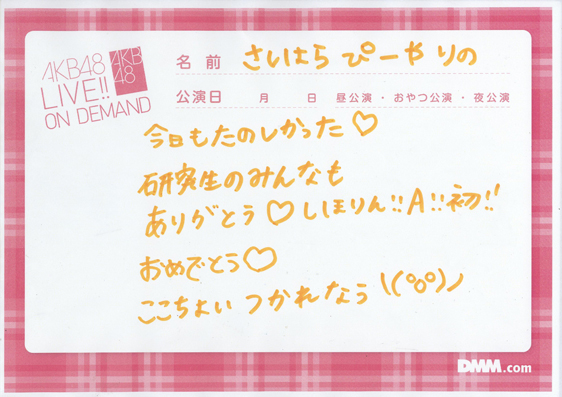 AKB48
LIVE!!
ON DEMAND
AKB
48
名前 さいはら ぴーや りの
公演日 月 日 昼公演・おやつ公演・夜公演
今日もたのしかった♡
研究生のみんなも
ありがとう♡しほりん!!A!!初!!
おめでとう♡
ここちよい つかれなう \(°o°)ノ
DMM.com